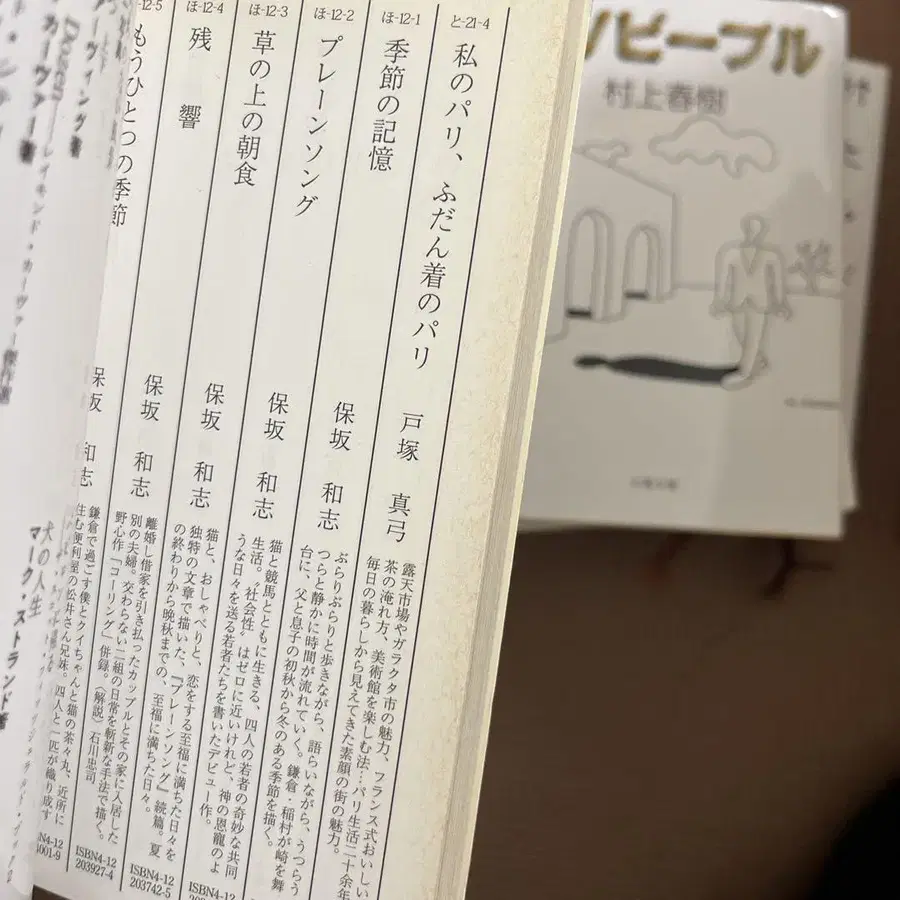 と-21-4
私のパリ、ふだん着のパリ
戸塚 真弓
露天市場やガラクタ市の魅力、フランス式おいしい
茶の淹れ方、美術館を楽しむ法…パリ生活二十余年
毎日の暮らしから見えてきた素顔の街の魅力。
ほ-12-1
季節の記憶
保坂 和志
ぶらりぶらりと歩きながら、語らいながら、うつらう
つらと静かに時間が流れていく。鎌倉・稲村が崎を舞
台に、父と息子の初秋から冬のある季節を描く。
ほ-12-2
プレーンソング
保坂 和志
猫と競馬とともに生きる、四人の若者の奇妙な共同
生活。“社会性”はゼロに近いけれど、神の恩寵のよ
うな日々を送る若者たちを書いたデビュー作。
ほ-12-3
草の上の朝食
保坂 和志
猫と、おしゃべりと、恋をする至福に満ちた日々を
独特の文章で描いた、『プレーンソング』続篇。夏
の終わりから晩秋までの、至福に満ちた日々。
ISBN4-12
203742-5
ほ-12-4
残響
保坂 和志
離婚し借家を引き払ったカップルとその家に入居した
別の夫婦。交わらない二組の日常を斬新な手法で描く。
野心作「コーリング」併録。〈解説〉石川忠司
ISBN4-12
203927-4
12-5
もうひとつの季節
保坂 和志
鎌倉で過ごす僕とクイちゃんと猫の茶々丸、近所に
住む便利屋の松井さん兄妹。四人と一匹が織り成す
N4-12
001-9
アーヴィング著
カーヴァー著
レイモンド・カーヴァー傑作選
犬の人生
マーク・ストランド著
ピープル
村上春樹